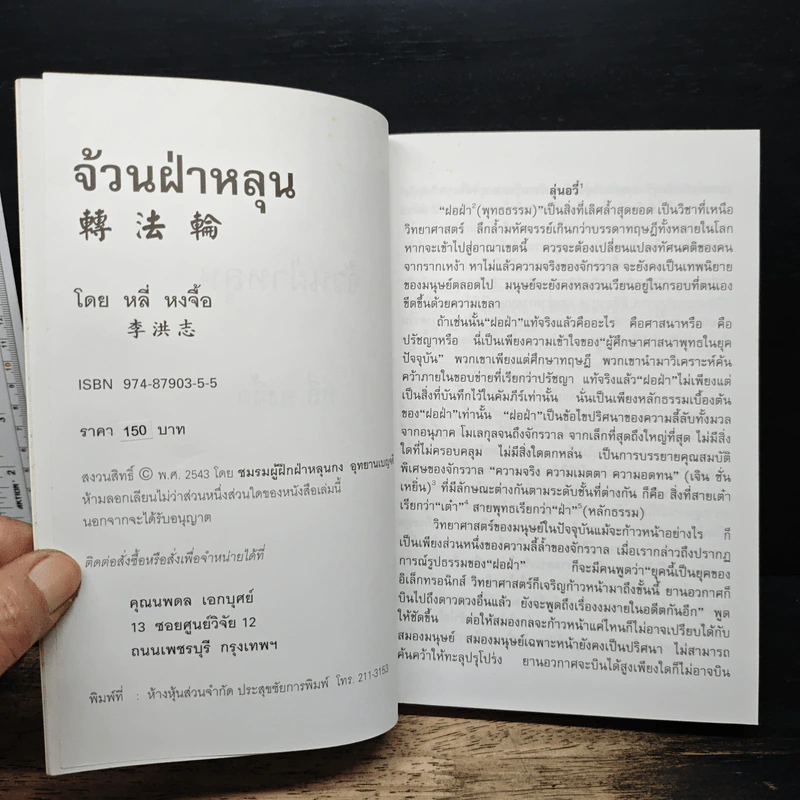 จ้วนฝ่าหลุน
轉法輪
โดย หลี่ หงจื้อ
李洪志
ISBN 974-87903-5-5
ราคา 150 บาท
สงวนสิทธิ์ © พ.ศ. 2543 โดย ชมรมผู้ฝึกฝ่าหลุนกง อุทยานเบญจ
ห้ามลอกเลียนไม่ว่าส่วนหนึ่งส่วนใดของหนังสือเล่มนี้
นอกจากจะได้รับอนุญาต
ติดต่อสั่งซื้อหรือสั่งเพื่อจำหน่ายได้ที่
คุณนพดล เอกบุศย์
13 ซอยศูนย์วิจัย 12
ถนนเพชรบุรี กรุงเทพฯ
พิมพ์ที่ : ห้างหุ้นส่วนจำกัด ประสุขชัยการพิมพ์ โทร. 211-3153
ลุ่นอวี่¹
"ฝอฝ่า²(พุทธธรรม)"เป็นสิ่งที่เลิศล้ำสุดยอด เป็นวิชาที่เหนือ
วิทยาศาสตร์ ลึกล้ำมหัศจรรย์เกินกว่าบรรดาทฤษฎีทั้งหลายในโลก
หากจะเข้าไปสู่อาณาเขตนี้ ควรจะต้องเปลี่ยนแปลงทัศนคติของคน
จากรากเหง้า หาไม่แล้วความจริงของจักรวาล จะยังคงเป็นเทพนิยาย
ของมนุษย์ตลอดไป มนุษย์จะยังคงหลงวนเวียนอยู่ในกรอบที่ตนเอง
ขีดขึ้นด้วยความเขลา
ถ้าเช่นนั้น"ฝอฝ่า"แท้จริงแล้วคืออะไร คือศาสนาหรือ คือ
ปรัชญาหรือ นี่เป็นเพียงความเข้าใจของ"ผู้ศึกษาศาสนาพุทธในยุค
ปัจจุบัน" พวกเขาเพียงแต่ศึกษาทฤษฎี พวกเขานำมาวิเคราะห์ค้น
คว้าภายในขอบข่ายที่เรียกว่าปรัชญา แท้จริงแล้ว"ฝอฝ่า"ไม่เพียงแต่
เป็นสิ่งที่บันทึกไว้ในคัมภีร์เท่านั้น นั่นเป็นเพียงหลักธรรมเบื้องต้น
ของ"ฝอฝ่า"เท่านั้น "ฝอฝ่า"เป็นข้อไขปริศนาของความลี้ลับทั้งมวล
จากอนุภาค โมเลกุลจนถึงจักรวาล จากเล็กที่สุดถึงใหญ่ที่สุด ไม่มีสิ่ง
ใดที่ไม่ครอบคลุม ไม่มีสิ่งใดตกหล่น เป็นการบรรยายคุณสมบัติ
พิเศษของจักรวาล "ความจริง ความเมตตา ความอดทน" (เจิน ซั่น
เหยิ่น)³ ที่มีลักษณะต่างกันตามระดับชั้นที่ต่างกัน ก็คือ สิ่งที่สายเต๋า
เรียกว่า"เต๋า"⁴ สายพุทธเรียกว่า"ฝ่า"⁵(หลักธรรม)
วิทยาศาสตร์ของมนุษย์ในปัจจุบันแม้จะก้าวหน้าอย่างไร ก็
เป็นเพียงส่วนหนึ่งของความลี้ล้ำของจักรวาล เมื่อเรากล่าวถึงปรากฏ
การณ์รูปธรรมของ"ฝอฝ่า" ก็จะมีคนพูดว่า"ยุคนี้เป็นยุคของ
อิเล็กทรอนิกส์ วิทยาศาสตร์ก็เจริญก้าวหน้ามาถึงขั้นนี้ ยานอวกาศก็
บินไปถึงดาวดวงอื่นแล้ว ยังจะพูดถึงเรื่องงมงายในอดีตกันอีก" พูด
ให้ชัดขึ้น ต่อให้สมองกลจะก้าวหน้าแค่ไหนก็ไม่อาจเปรียบได้กับ
สมองมนุษย์ สมองมนุษย์เฉพาะหน้ายังคงเป็นปริศนา ไม่สามารถ
ค้นคว้าให้ทะลุปรุโปร่ง ยานอวกาศจะบินได้สูงเพียงใดก็ไม่อาจบิน